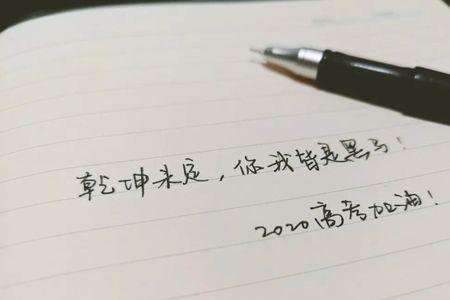 乾坤未定，你我皆是黑马！
2020高考加油！